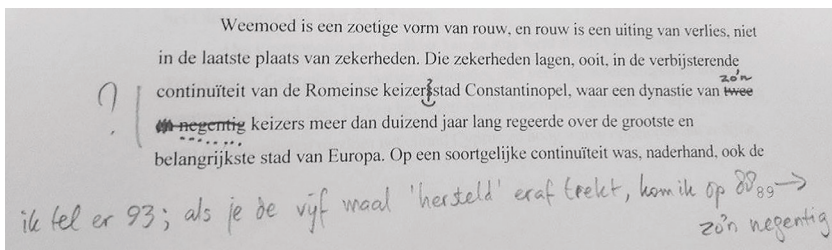 Weemoed is een zoetige vorm van rouw, en rouw is een uiting van verlies, niet
in de laatste plaats van zekerheden. Die zekerheden lagen, ooit, in de verbijsterende
zo'n
? continuïteit van de Romeinse keizerstad Constantinopel, waar een dynastie van twee
negentig keizers meer dan duizend jaar lang regeerde over de grootste en
belangrijkste stad van Europa. Op een soortgelijke continuïteit was, naderhand, ook de
ik tel er 93; als je de vijf maal 'hersteld' eraf trekt, kom ik op 88 89 →
zo'n negentig